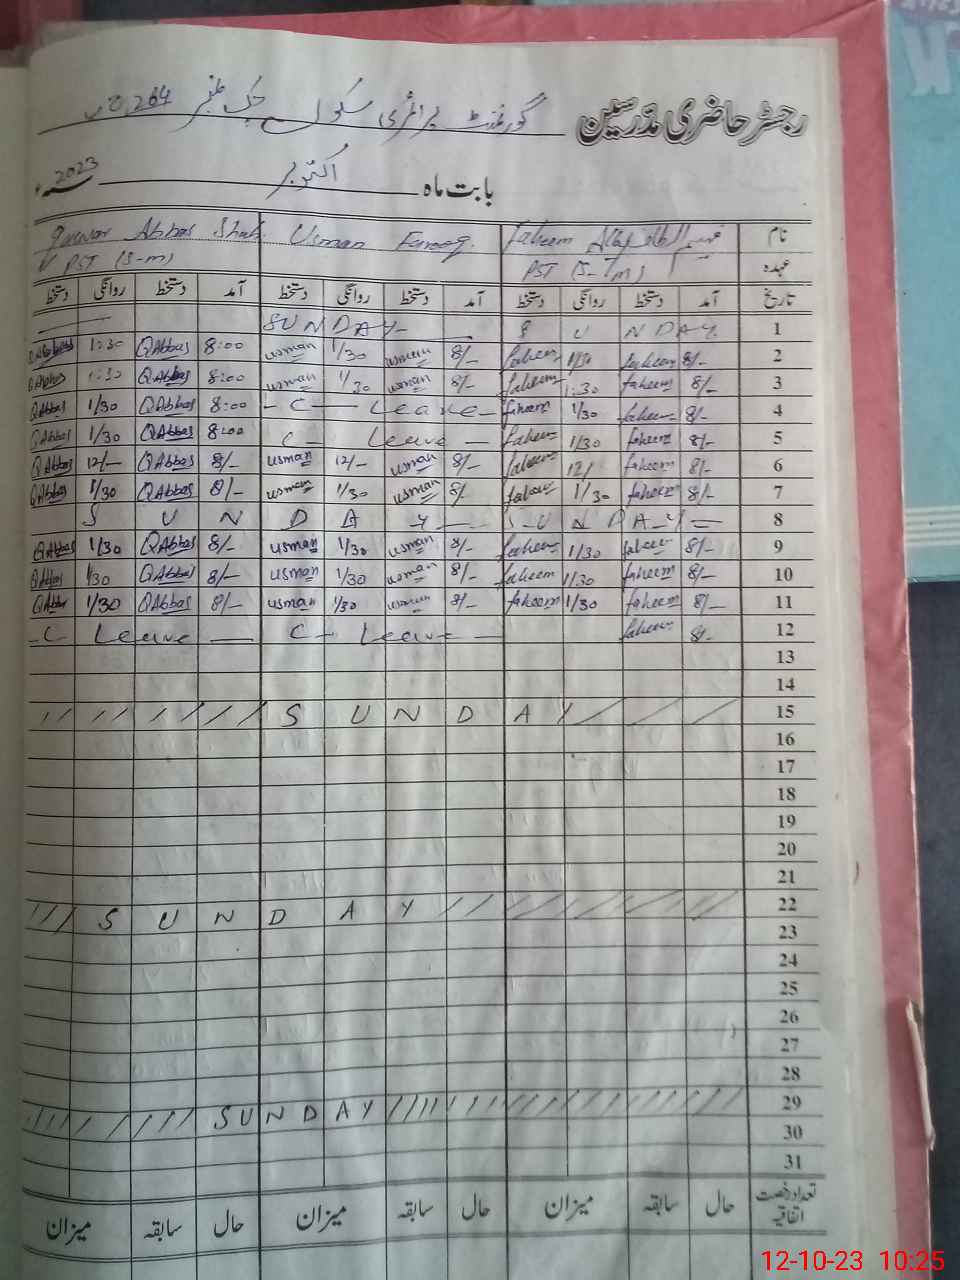 رجسٹر حاضری مدرسین گورنمنٹ پرائمری سکول چک نمبر 264
بابت ماہ اکتوبر 2023ء
نام faheem Usman Farooq. Abbas Shah
عہدہ PST (S-m) PST (S-m)
تاریخ آمد دستخط روانگی دستخط آمد دستخط روانگی دستخط آمد دستخط روانگی دستخط
1 SUNDAY SUNDAY
2 8/- faheem 1/30 faheem 8/- usman 1/30 usman 8:00 QAbbas 1:30
3 8/- faheem 1:30 faheem 8/- usman 1/30 usman 8:00 QAbbas 1:30
4 8/- faheem 1/30 faheem C- Leave 8:00 QAbbas 1/30 QAbbas
5 8/- faheem 1/30 faheem C- Leave 8:00 QAbbas 1/30 QAbbas
6 8/- faheem 12/ faheem 8/- usman 12/- usman 8/- QAbbas 12/- QAbbas
7 8/- faheem 1/30 faheem 8/ usman 1/30 usman 8/- QAbbas 1/30 QAbbas
8 SUNDAY SUNDAY
9 8/- faheem 1/30 faheem 8/- usman 1/30 usman 8/- QAbbas 1/30 QAbbas
10 8/- faheem 1/30 faheem 8/- usman 1/30 usman 8/- QAbbas 1/30 QAbbas
11 8/- faheem 1/30 faheem 8/- usman 1/30 usman 8/- QAbbas 1/30 QAbbas
12 8/- faheem C- Leave C- Leave
13
14
15 SUNDAY
16
17
18
19
20
21
22 SUNDAY
23
24
25
26
27
28
29 SUNDAY
30
31
تعداد رخصت اتفاقیہ حال سابقہ میزان حال سابقہ میزان حال سابقہ میزان
12-10-23 10:25